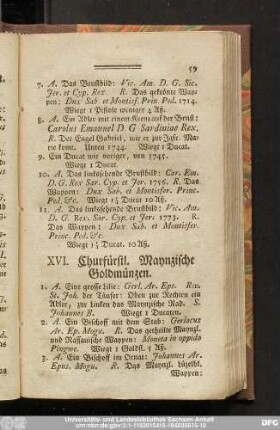 59
7. A. Das Brustbild: Vic. Am. D. G. Sic.
Jer. et Cyp. Rex. R. Das gekrönte Wap-
pen: Dux Sab. et Montisf. Prin. Ped. 1714.
Wiegt 1 Pistole weniger 4 Aß.
8. A. Ein Adler mit einem Kreuz auf der Brust:
Carolus Emanuel D. G Sardiniae Rex,
R. Der Engel Gabriel, wie er zur Jgfr. Ma-
rie kömt. Unten 1744. Wiegt 1 Ducat.
9. Ein Ducat wie voriger, von 1745.
Wiegt 1 Ducat.
10. A. Das linkssehende Brustbild: Car. Em.
D. G. Rex Sar. Cyp. et Jer. 1756. R. Das
Wappen: Dux Sab. et Montisfer. Princ.
Ped. &c. Wiegt 1½ Ducat 10 Aß.
11. A. Das linkssehende Brustbild: Vic. Am.
D. G. Rex. Sar. Cyp. et Jer. 1773. R.
Das Wappen: Dux Sab. et Montisfer.
Princ. Ped. &c.
Wiegt 1½ Ducat. 10 Aß.
XVI. Churfürstl. Maynzische
Goldmünzen.
1. A. Eine grosse Lilie: Gerl. Ar. Eps. Rev.
St. Joh. der Täufer: Oben zur Rechten ein
Adler, zur Linken das Maynzische Rad. S.
Johannes B. Wiegt 1 Ducaten.
2. A. Ein Bischoff mit dem Stab: Gerlacus
Ar. Ep. Mogu. R. Das getheilte Maynzl.
und Nassauische Wappen: Moneta in oppido
Pingwe. Wiegt 1 Goldfl. 4 Aß.
3. A. Ein Bischoff im Ornat: Johannes Ar.
Epus. Mogu. R. Das Maynzl. vierfelbt.
Wappen:
Universitäts- und Landesbibliothek Sachsen-Anhalt
DFG